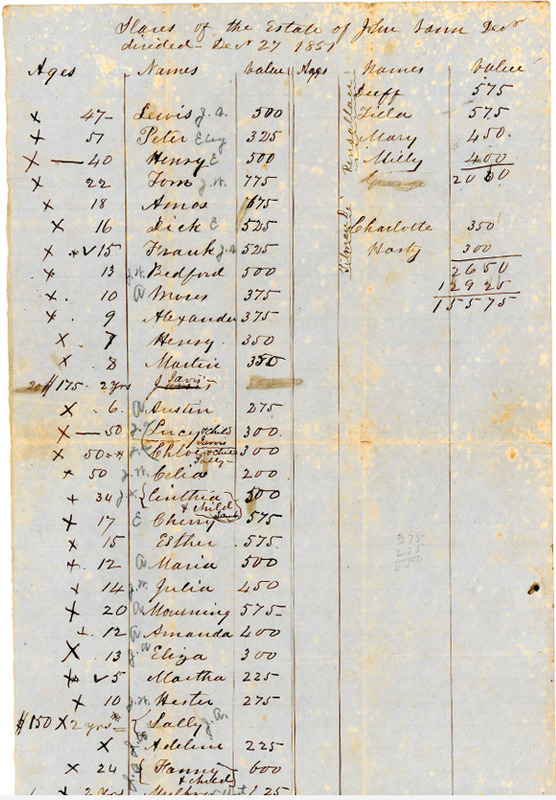 Slaves of the Estate of John Decd
divided Decr 27 1851
Ages Names Value Ages Names Value
X 47 Lewis J.A. 500
X 51 Peter Eliz 325
X 40 Henry E 500
X 22 Tom J.W. 775
X 18 Amos 675
X 16 Dick E 525
X 15 Frank 525
X 13 J.W. Bedford 500
X 10 A Moses 375
X 9 Alexander 375
X 7 Henry 350
X 8 Martin 350
$175 2 yrs Jarvis
X 6 A Austin 275
X 50 Lucy & child Jarvis 300
X 50 Chloe & child Sally 300
X 50 J.W. Celia 200
X 34 Cinthia & child 500
X 17 E Cherry 575
X 15 Esther 575
X 12 A Maria 500
X 14 J.W. Julia 450
X 20 A Mourning 575
X 12 A Amanda 400
X 13 Eliza 300
X 5 Martha 225
X 10 J.W. Hester 275
$150 X 2 yrs Sally J.A.
X Adeline 225
X 24 Fanny & child 600
2 yrs 125
Duff 575
575
Mary 450
Milly 400
George 2000
Charlotte 350
Harty 300
2650
12925
15575
375
275
650